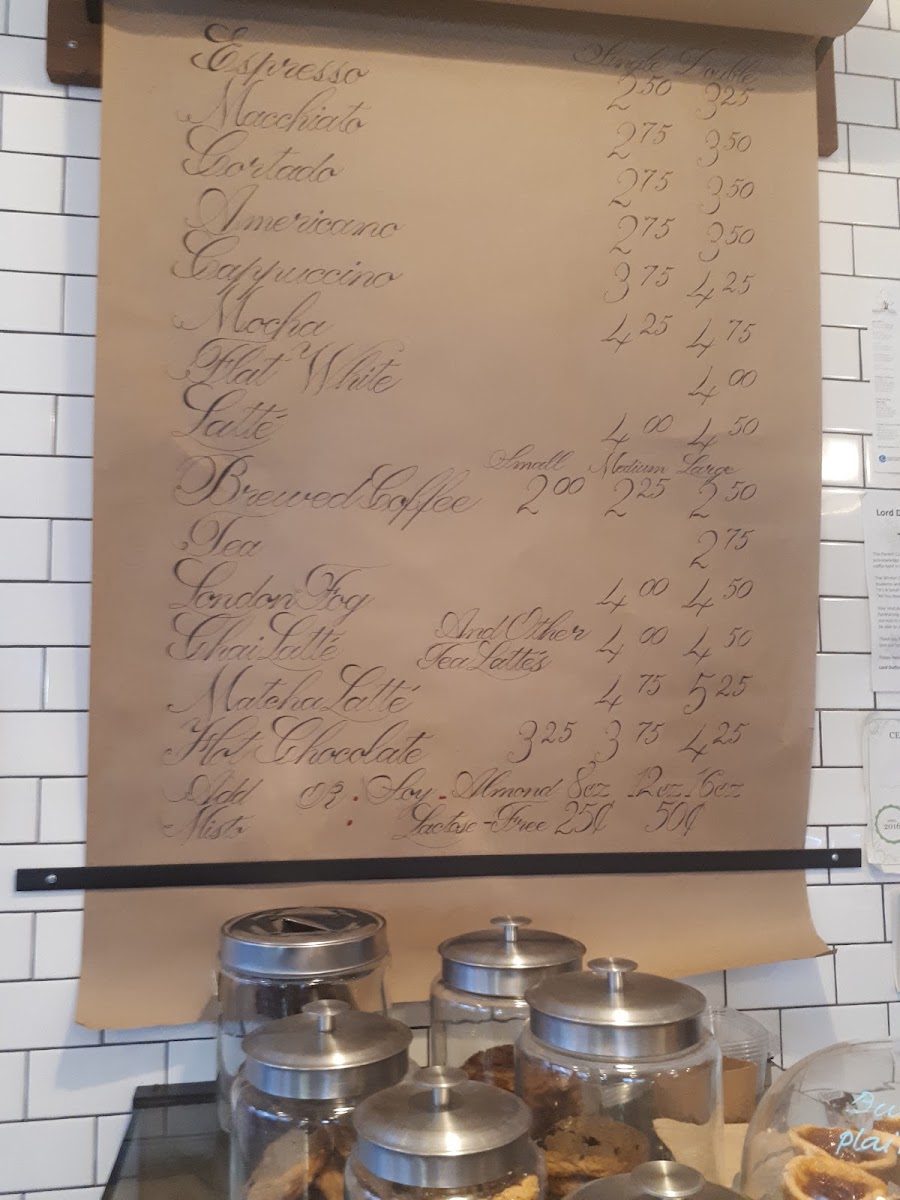 Single Double
Espresso 2 50 3 25
Macchiato 2 75 3 50
Cortado 2 75 3 50
Americano 2 75 3 50
Cappuccino 3 75 4 25
Mocha 4 25 4 75
Flat White 4 00
Latté 4 00 4 50
Small Medium Large
Brewed Coffee 2 00 2 25 2 50
Tea 2 75
London Fog 4 00 4 50
Chai Latté And Other Tea Latté's 4 00 4 50
Matcha Latté 4 75 5 25
Hot Chocolate 3 25 3 75 4 25
Add OR Soy - Almond 8oz 12oz 16oz
Lactose-Free 25¢ 50¢
Lord
2016
plai